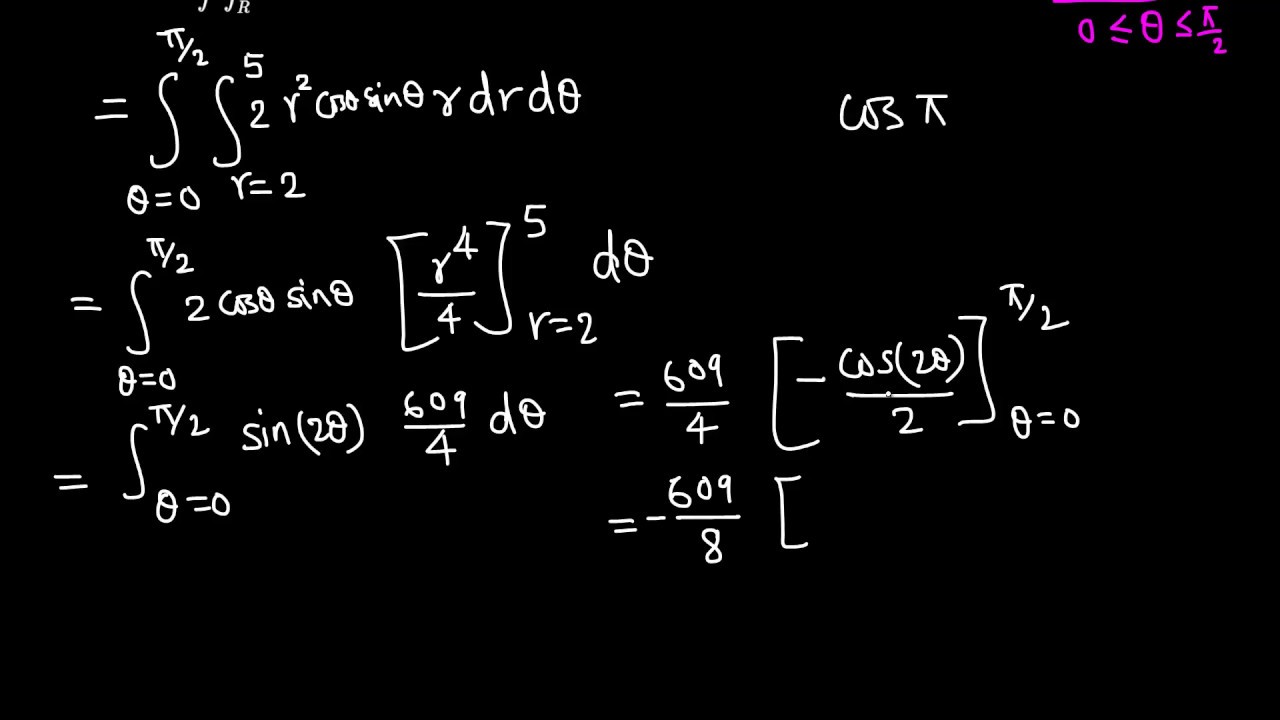 ∫∫_R
0 ≤ θ ≤ π/2
= ∫_{θ=0}^{π/2} ∫_{r=2}^{5} 2 r² cosθ sinθ r dr dθ
cos π
= ∫_{θ=0}^{π/2} 2 cosθ sinθ [r⁴/4]_{r=2}^{5} dθ
= ∫_{θ=0}^{π/2} sin(2θ) 609/4 dθ
= 609/4 [- cos(2θ)/2]_{θ=0}^{π/2}
= - 609/8 [